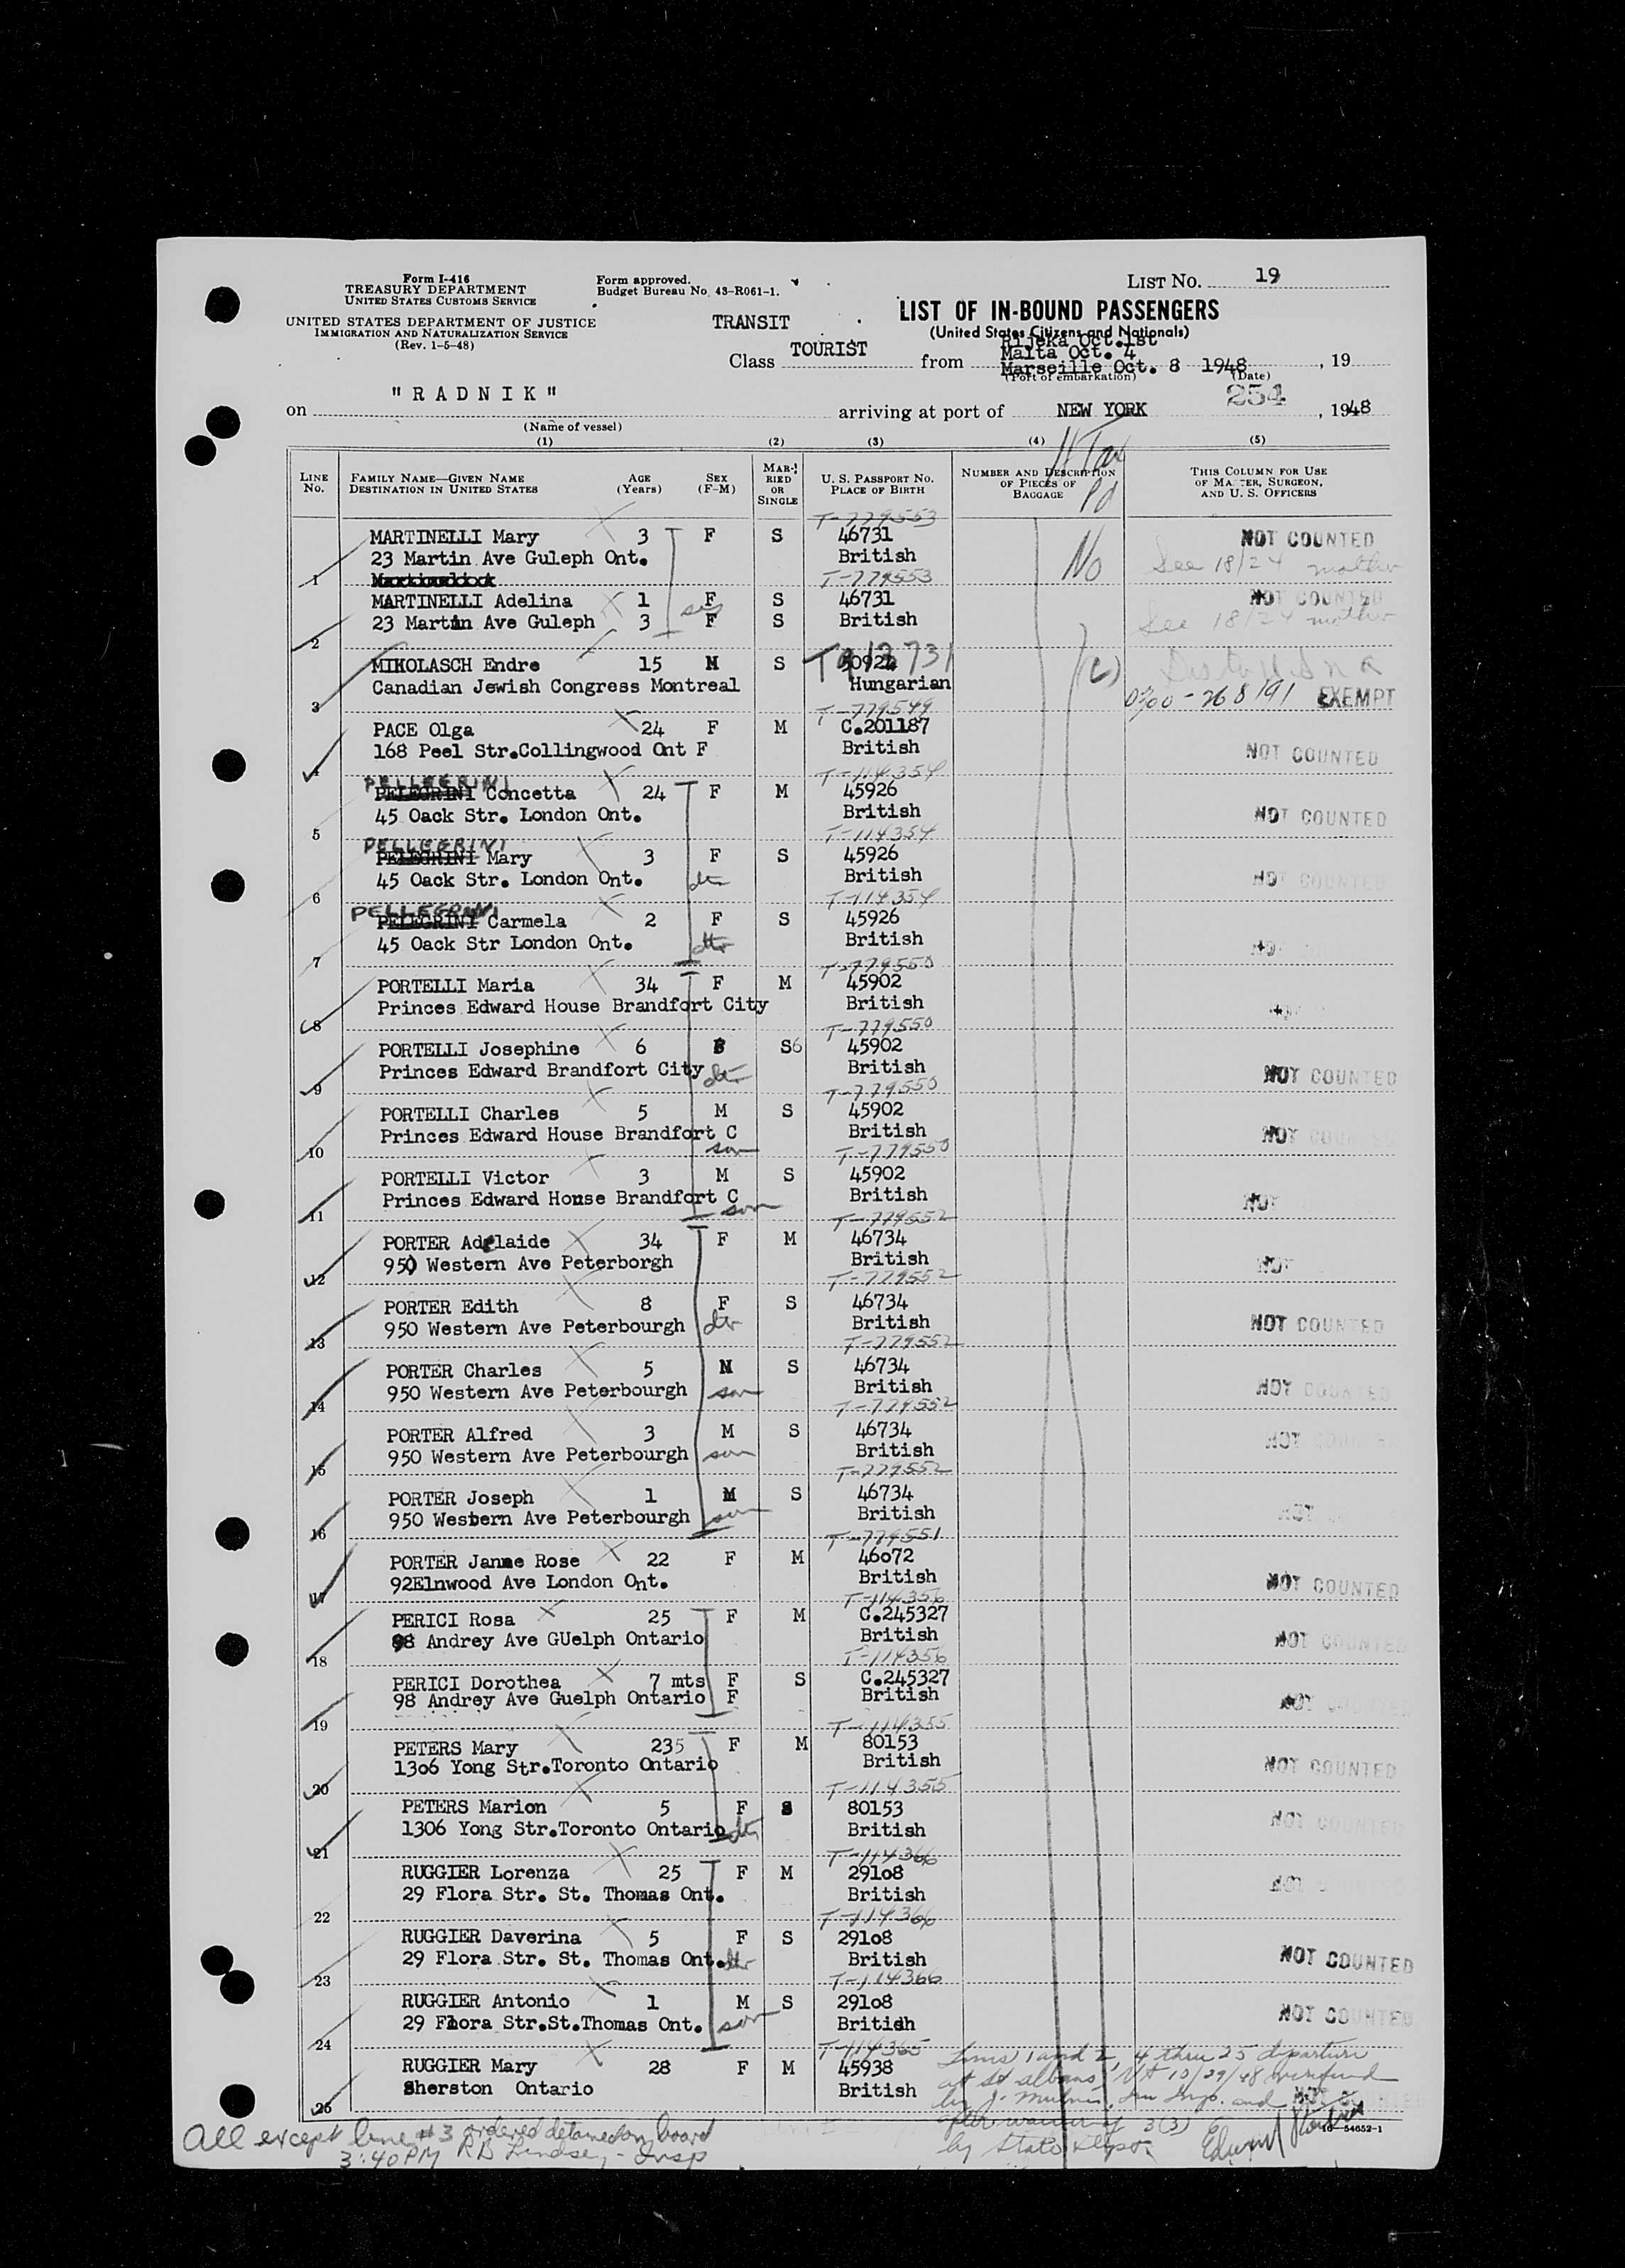 Form I-416
TREASURY DEPARTMENT
UNITED STATES CUSTOMS SERVICE
UNITED STATES DEPARTMENT OF JUSTICE
IMMIGRATION AND NATURALIZATION SERVICE
(Rev. 1-5-48)
Form approved.
Budget Bureau No. 43-R061-1.
LIST NO. 19
LIST OF IN-BOUND PASSENGERS
(United States Citizens and Nationals)
TRANSIT
Class TOURIST from Rijeka Oct.1st
Malta Oct. 4
Marseille Oct. 8 1948, 19
(Port of embarkation) (Date)
on "RADNIK" arriving at port of NEW YORK 254, 1948
(Name of vessel)
(1) (2) (3) (4) (5)
LINE No. FAMILY NAME—GIVEN NAME DESTINATION IN UNITED STATES AGE (Years) SEX (F-M) MARRIED OR SINGLE U. S. PASSPORT NO. PLACE OF BIRTH NUMBER AND DESCRIPTION OF PIECES OF BAGGAGE THIS COLUMN FOR USE OF MASTER, SURGEON, AND U. S. OFFICERS
H Tax
Pd
T-779553
MARTINELLI Mary 3 F S 46731 NOT COUNTED
23 Martin Ave Guleph Ont. British No See 18/24 mother
1 T-779553
MARTINELLI Adelina 1 F S 46731 NOT COUNTED
23 Martin Ave Guleph 3 sis F S British See 18/24 mother
2
MIKOLASCH Endre 15 M S (c)
Canadian Jewish Congress Montreal Hungarian EXEMPT
3 T-779549
PACE Olga 24 F M C.201187
168 Peel Str.Collingwood Ont F British NOT COUNTED
4 T-114354
PELLEGRINI
PELEGRINI Concetta 24 F M 45926
45 Oack Str. London Ont. British NOT COUNTED
5 T-114354
PELLEGRINI
PELEGRINI Mary 3 F S 45926
45 Oack Str. London Ont. dtr British NOT COUNTED
6 T-114354
PELLEGRINI
PELEGRINI Carmela 2 F S 45926
45 Oack Str London Ont. dtr British
7 T-779550
PORTELLI Maria 34 F M 45902
Princes Edward House Brandfort City British
8 T-779550
PORTELLI Josephine 6 F S6 45902
Princes Edward Brandfort City dtr British NOT COUNTED
9 T-779550
PORTELLI Charles 5 M S 45902
Princes Edward House Brandfort C son British NOT COUNTED
10 T-779550
PORTELLI Victor 3 M S 45902
Princes Edward House Brandfort C son British NOT
11 T-779552
PORTER Adelaide 34 F M 46734
950 Western Ave Peterborgh British NOT
12 T-779552
PORTER Edith 8 F S 46734
950 Western Ave Peterbourgh dtr British NOT COUNTED
13 T-779552
PORTER Charles 5 M S 46734
950 Western Ave Peterbourgh son British NOT COUNTED
14 T-779552
PORTER Alfred 3 M S 46734
950 Western Ave Peterbourgh son British NOT COUNTED
15 T-779552
PORTER Joseph 1 M S 46734
950 Western Ave Peterbourgh son British NOT
16 T-779551
PORTER Janne Rose 22 F M 46o72
92Elnwood Ave London Ont. British NOT COUNTED
17 T-114356
PERICI Rosa 25 F M C.245327
98 Andrey Ave GUelph Ontario British NOT COUNTED
18 T-114356
PERICI Dorothea 7 mts F S C.245327
98 Andrey Ave Guelph Ontario F British NOT COUNTED
19 T-114355
PETERS Mary 235 F M 80153
13o6 Yong Str.Toronto Ontario British NOT COUNTED
20 T-114355
PETERS Marion 5 F S 80153
1306 Yong Str.Toronto Ontario dtr British NOT COUNTED
21 T-114366
RUGGIER Lorenza 25 F M 291o8
29 Flora Str. St. Thomas Ont. British NOT COUNTED
22 T-114366
RUGGIER Daverina 5 F S 291o8
29 Flora Str. St. Thomas Ont. dtr British NOT COUNTED
23 T-114366
RUGGIER Antonio 1 M S 291o8
29 Flora Str.St.Thomas Ont. son British NOT COUNTED
24 T-114365
RUGGIER Mary 28 F M 45938
Sherston Ontario British
25
Lines 1 and 2, 4 thru 25 departure
at St albans, Vt 10/29/48 verified
by State Dept.
16-54652-1
All except line #3 ordered detained on board
3:40 PM RD Lindsey - Insp